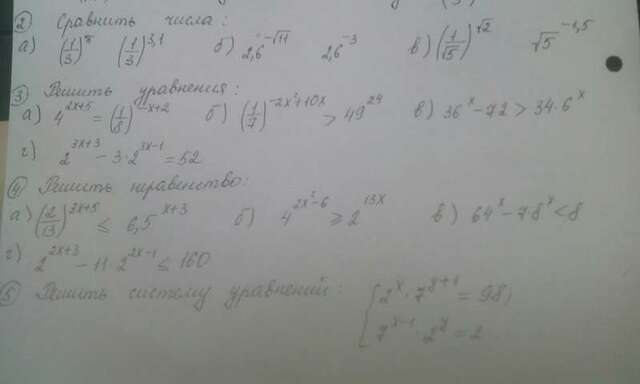 ② Сравнить числа:
а) (1/3)^π (1/3)^3,1 б) 2,6^-√11 2,6^-3 в) (1/√5)^√2 √5^-1,5
③ Решить уравнения:
а) 4^2x+5 = (1/8)^-x+2 б) (1/7)^-2x²+10x > 49^24 в) 36^x - 72 > 34·6^x
г) 2^3x+3 - 3·2^3x-1 = 52
④ Решить неравенство:
а) (2/13)^3x+5 ≤ 6,5^x+3 б) 4^2x²-6 ≥ 2^13x в) 64^x - 7·8^x < 8
г) 2^2x+3 - 11 2^2x-1 ≤ 160
⑤ Решить систему уравнений: { 2^x · 7^y+1 = 98,
7^x-1 · 2^y = 2